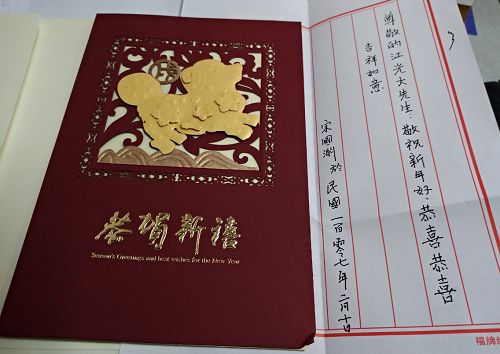 恭賀新禧
Season's Greetings and best wishes for the New Year
尊敬的江光大先生:敬祝新年好.恭喜恭喜
吉祥如意
宋國 於民國一百零七年二月十日
福牌